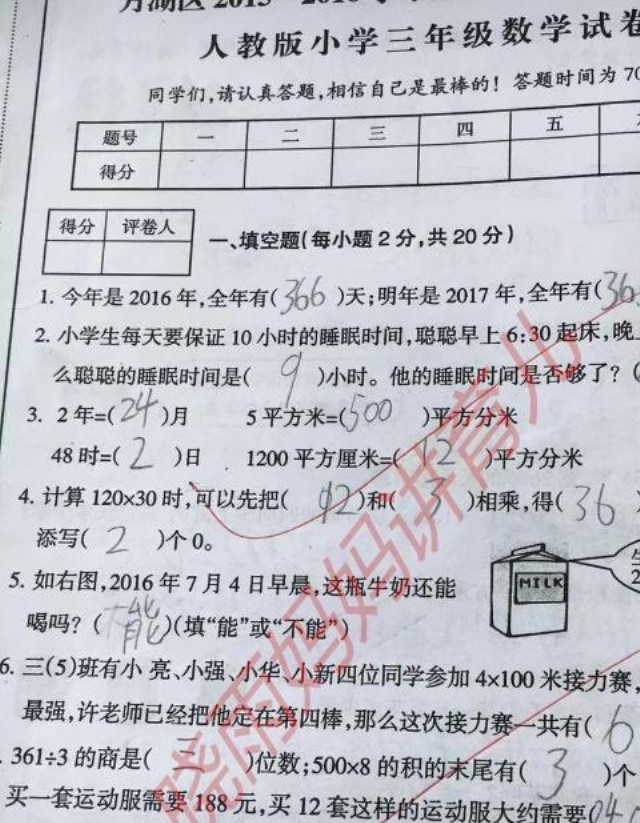 人教版小学三年级数学试卷
同学们,请认真答题,相信自己是最棒的! 答题时间为70
题号 一 二 三 四 五
得分
得分 评卷人
一、填空题(每小题2分,共20分)
1. 今年是2016年,全年有(366)天;明年是2017年,全年有(36
2. 小学生每天要保证10小时的睡眠时间,聪聪早上6:30起床,晚上
么聪聪的睡眠时间是( 9 )小时。他的睡眠时间是否够了?(
3. 2年=(24)月 5平方米=(500 )平方分米
48时=( 2 )日 1200平方厘米=( 12 )平方分米
4. 计算120×30时,可以先把( 12)和( 3 )相乘,得( 36 )
添写( 2 )个0。
5. 如右图,2016年7月4日早晨,这瓶牛奶还能
MILK
喝吗?( 能)(填“能”或“不能”)
6. 三(5)班有小 亮、小强、小华、小新四位同学参加4×100米接力赛,
最强,许老师已经把他定在第四棒,那么这次接力赛一共有( 6
. 361÷3的商是( 三 )位数;500×8的积的末尾有( 3 )个
买一套运动服需要188元,买12套这样的运动服大约需要(
晓雨妈妈讲育儿